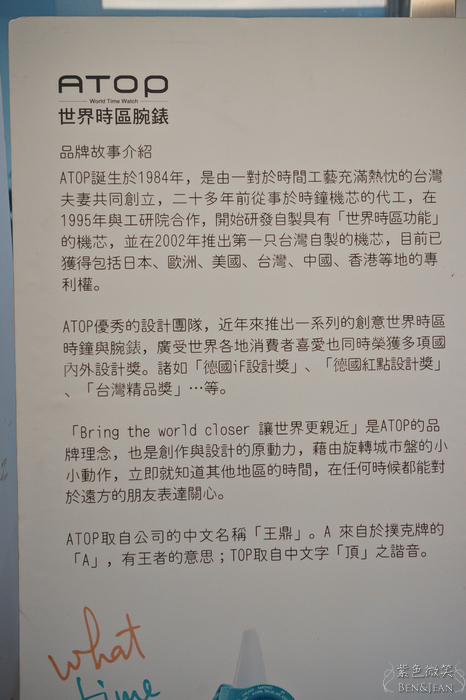 ATOP
World Time Watch
世界時區腕錶
品牌故事介紹
ATOP誕生於1984年，是由一對於時間工藝充滿熱忱的台灣
夫妻共同創立，二十多年前從事於時鐘機芯的代工，在
1995年與工研院合作，開始研發自製具有「世界時區功能」
的機芯，並在2002年推出第一只台灣自製的機芯，目前已
獲得包括日本、歐洲、美國、台灣、中國、香港等地的專
利權。
ATOP優秀的設計團隊，近年來推出一系列的創意世界時區
時鐘與腕錶，廣受世界各地消費者喜愛也同時榮獲多項國
內外設計獎。諸如「德國iF設計獎」、「德國紅點設計獎」
、「台灣精品獎」…等。
「Bring the world closer 讓世界更親近」是ATOP的品
牌理念，也是創作與設計的原動力，藉由旋轉城市盤的小
小動作，立即就知道其他地區的時間，在任何時候都能對
於遠方的朋友表達關心。
ATOP取自公司的中文名稱「王鼎」。A 來自於撲克牌的
「A」，有王者的意思；TOP取自中文字「頂」之諧音。
what
time
紫色微笑
BEN&JEAN